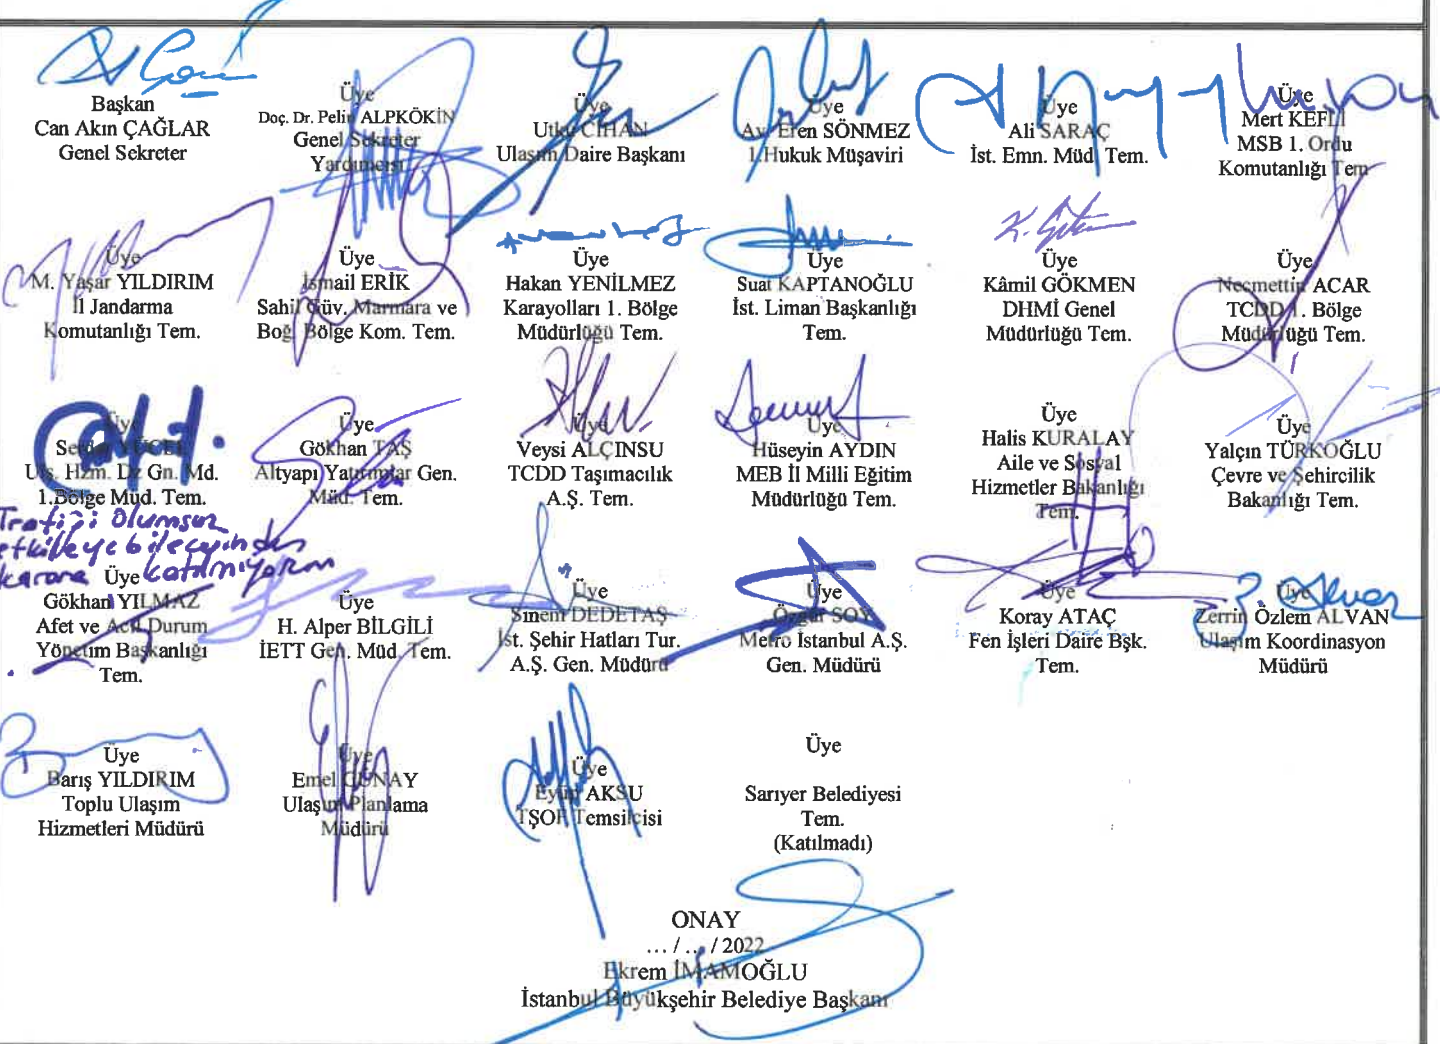 Başkan
Can Akın ÇAĞLAR
Genel Sekreter
Üye
Doç. Dr. Pelin ALPKÖKİN
Genel Sekreter
Yardımcısı
Üye
Utku CİHAN
Ulaşım Daire Başkanı
Üye
Av. Eren SÖNMEZ
1.Hukuk Müşaviri
Üye
Ali SARAÇ
İst. Emn. Müd. Tem.
Üye
Mert KEFLİ
MSB 1. Ordu
Komutanlığı Tem
Üye
M. Yaşar YILDIRIM
İl Jandarma
Komutanlığı Tem.
Üye
İsmail ERİK
Sahil Güv. Marmara ve
Boğ. Bölge Kom. Tem.
Üye
Hakan YENİLMEZ
Karayolları 1. Bölge
Müdürlüğü Tem.
Üye
Suat KAPTANOĞLU
İst. Liman Başkanlığı
Tem.
Üye
Kâmil GÖKMEN
DHMİ Genel
Müdürlüğü Tem.
Üye
Necmettin ACAR
TCDD 1. Bölge
Müdürlüğü Tem.
Üye
Serdar YÜCEL
Ulş. Hzm. Dz Gn. Md.
1.Bölge Müd. Tem.
Üye
Gökhan TAŞ
Altyapı Yatırımlar Gen.
Müd. Tem.
Üye
Veysi ALÇINSU
TCDD Taşımacılık
A.Ş. Tem.
Üye
Hüseyin AYDIN
MEB İl Milli Eğitim
Müdürlüğü Tem.
Üye
Halis KURALAY
Aile ve Sosyal
Hizmetler Bakanlığı
Tem.
Üye
Yalçın TÜRKOĞLU
Çevre ve Şehircilik
Bakanlığı Tem.
Trafiği Olumsuz
etkileyebileceğinden
karara katılmıyorum
Üye
Gökhan YILMAZ
Afet ve Acil Durum
Yönetim Başkanlığı
Tem.
Üye
H. Alper BİLGİLİ
İETT Gen. Müd. Tem.
Üye
Sinem DEDETAŞ
İst. Şehir Hatları Tur.
A.Ş. Gen. Müdürü
Üye
Özgür SOY
Metro İstanbul A.Ş.
Gen. Müdürü
Üye
Koray ATAÇ
Fen İşleri Daire Bşk.
Tem.
Üye
Zerrin Özlem ALVAN
Ulaşım Koordinasyon
Müdürü
Üye
Barış YILDIRIM
Toplu Ulaşım
Hizmetleri Müdürü
Üye
Emel GÜNAY
Ulaşım Planlama
Müdürü
Üye
Eyüp AKSU
TŞOF Temsilcisi
Üye
Sarıyer Belediyesi
Tem.
(Katılmadı)
ONAY
... / ... / 2022
Ekrem İMAMOĞLU
İstanbul Büyükşehir Belediye Başkanı